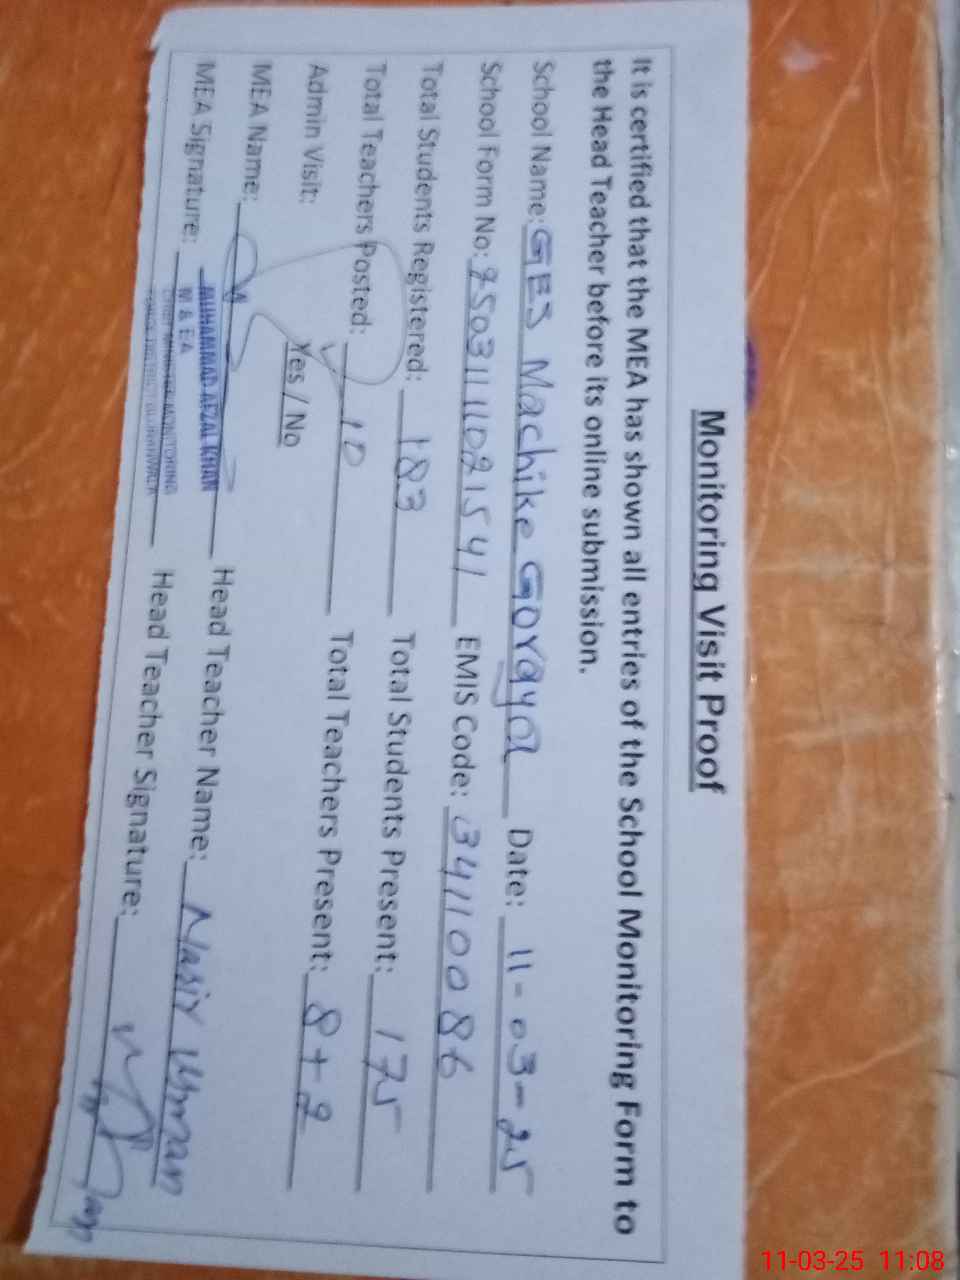 Monitoring Visit Proof
It is certified that the MEA has shown all entries of the School Monitoring Form to
the Head Teacher before its online submission.
School Name: GES Machike Goraya Date: 11-03-25
School Form No: 7503111021541 EMIS Code: 34110086
Total Students Registered: 183 Total Students Present: 175
Total Teachers Posted: 10 Total Teachers Present: 8+2
Admin Visit: Yes / No
MEA Name: MUHAMMAD AFZAL KHAN Head Teacher Name: Nasir Usman
MEA Signature: M & EA Head Teacher Signature:
CHIEF MINISTER MONITORING
11-03-25 11:08